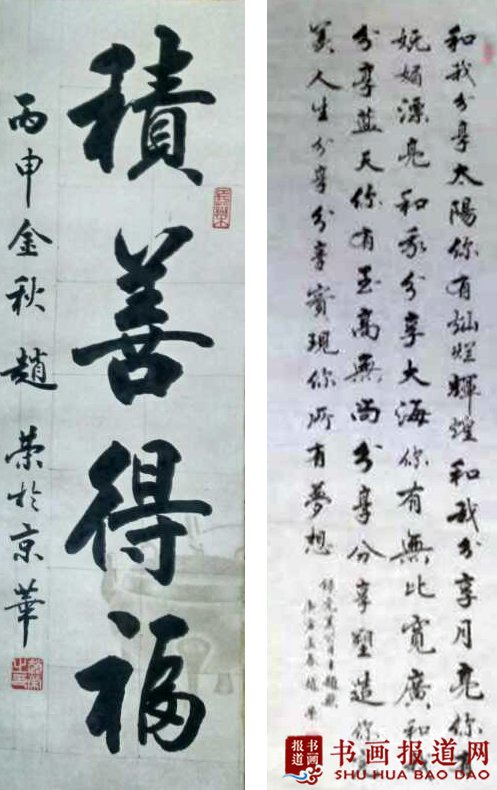 積善得福
丙申金秋 趙榮於京華
和我分享太陽你有灿烂輝煌和我分享月亮你有
妩媚漂亮和我分享大海你有無比寬廣和我
分享蓝天你有至高無尚分享分享塑造你
美人生分享分享實現你所有夢想
书画报道
书画报道网
SHU HUA BAO DAO